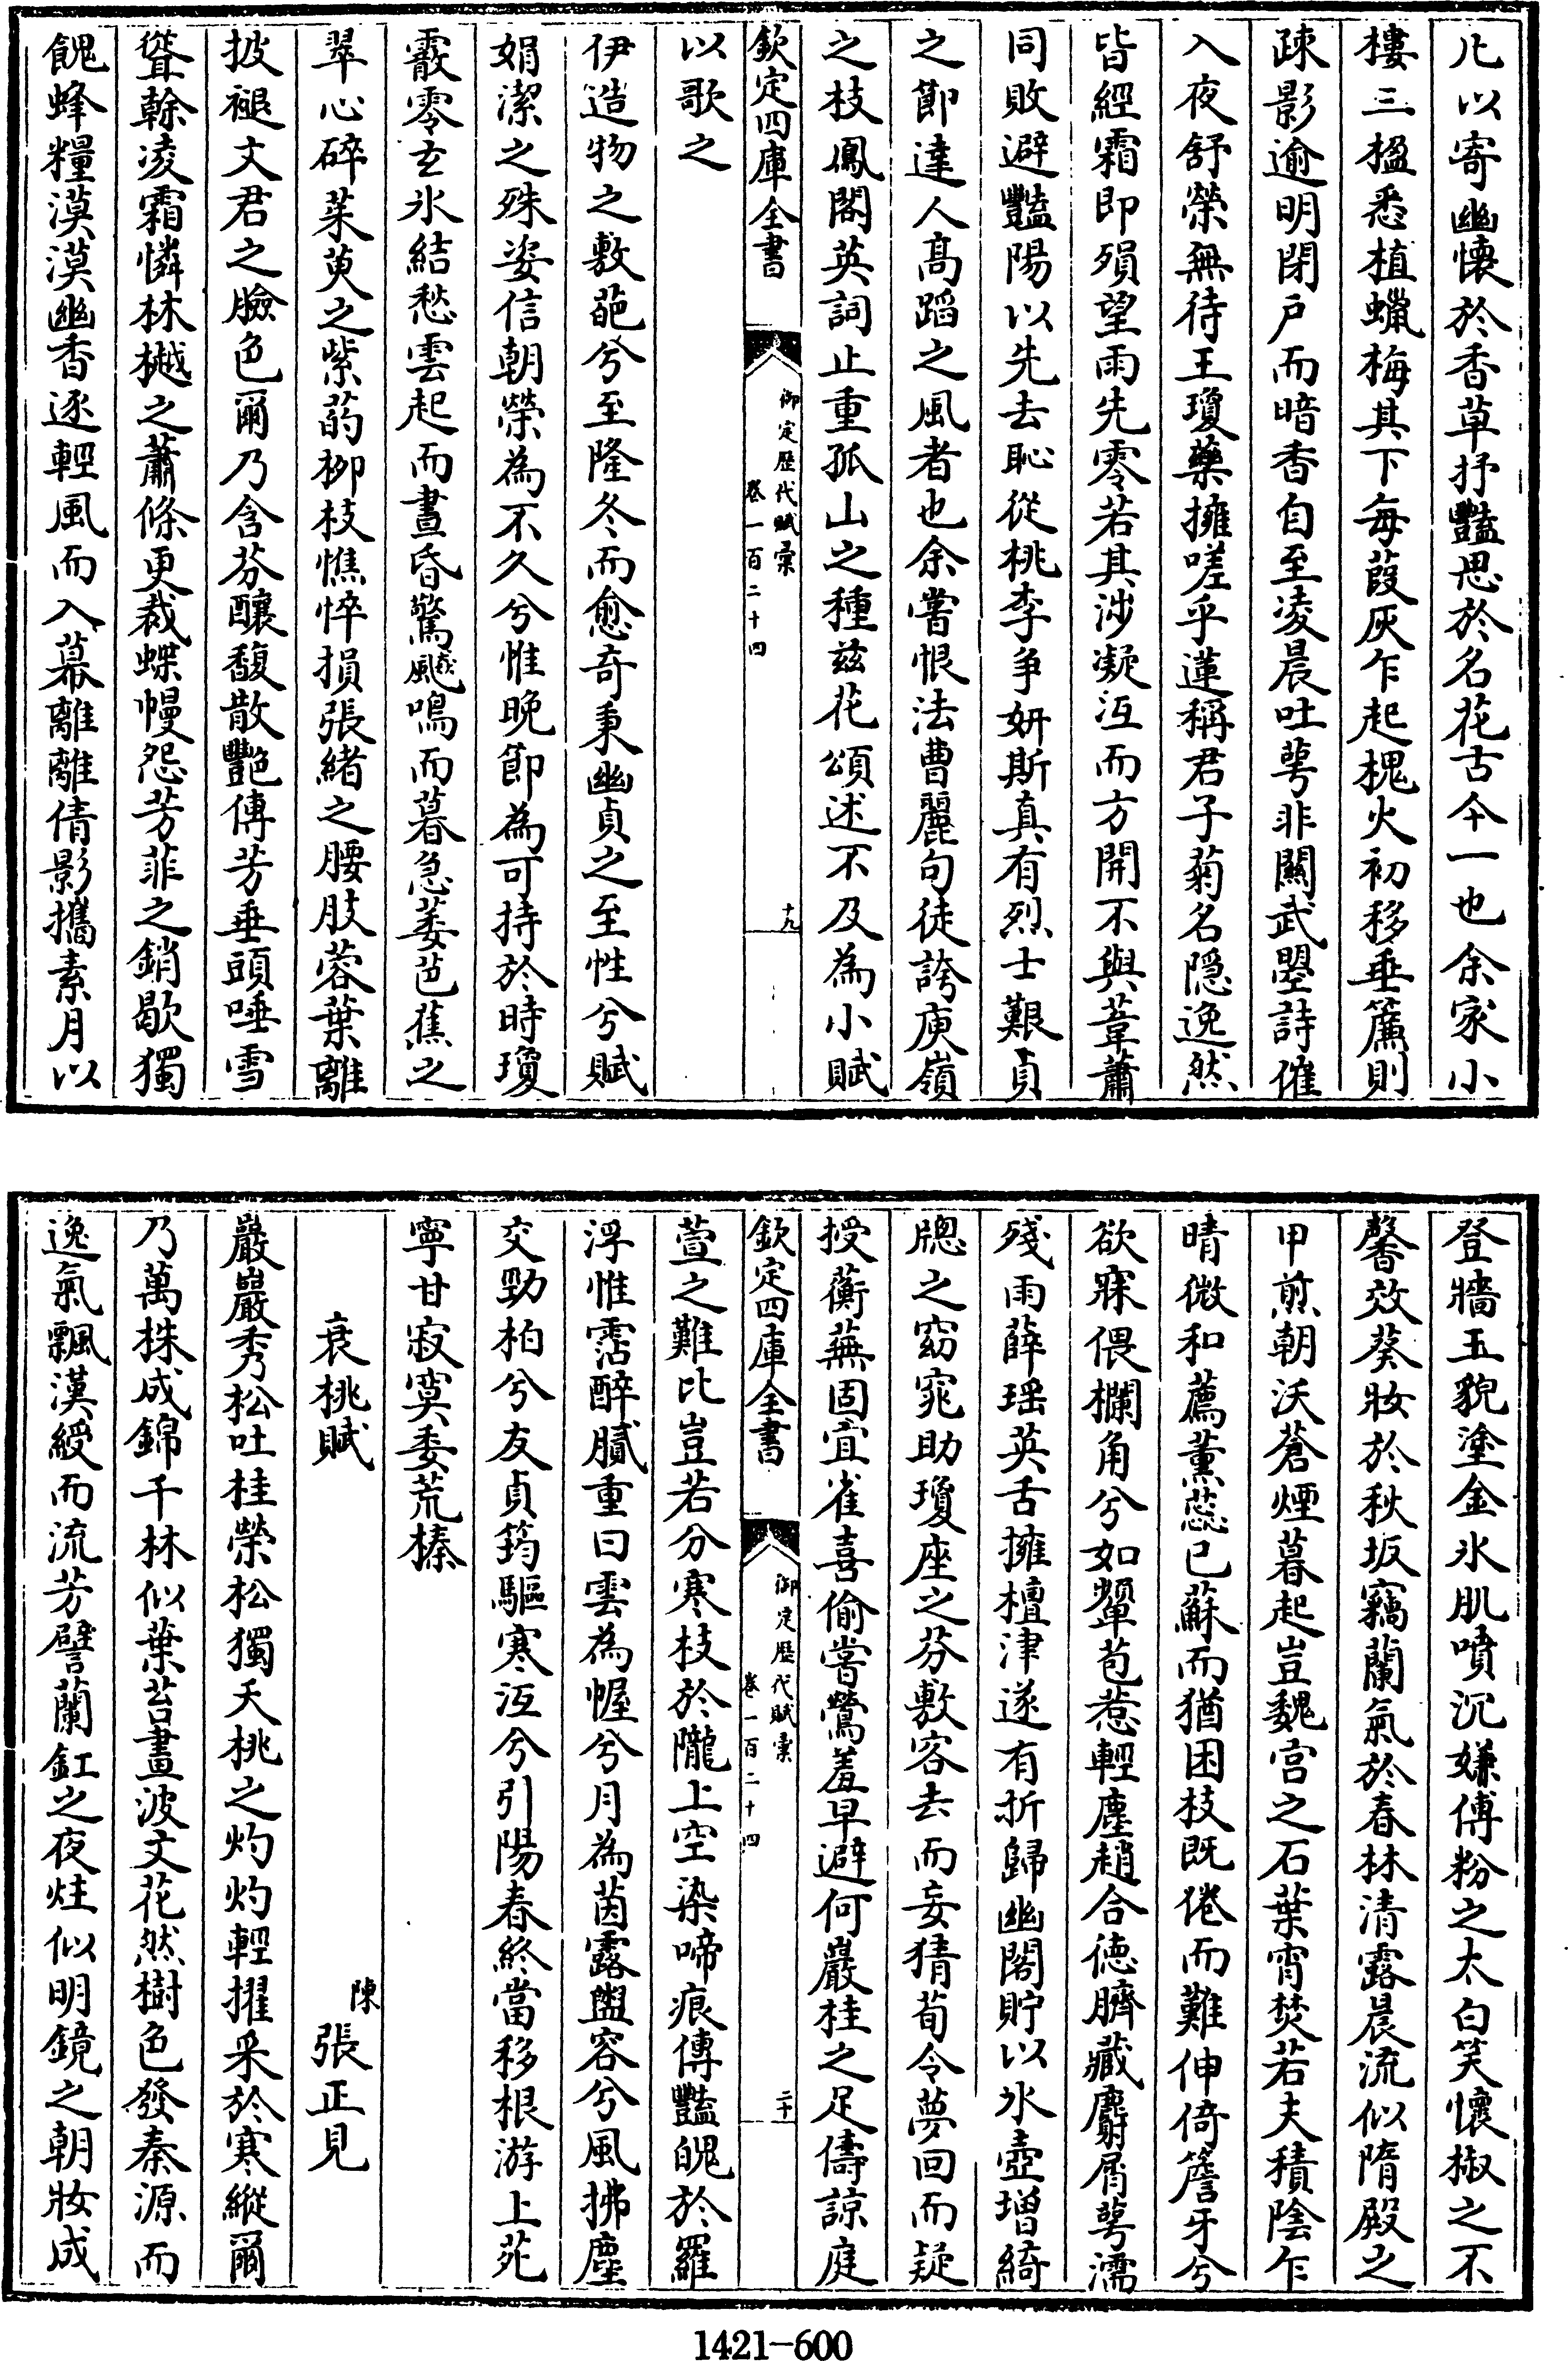 凡以寄幽懷於香草抒豔思於名花古今一也余家小
樓三楹悉植蠟梅其下每葭灰乍起槐火初移垂簾則
疎影逾明閉戶而暗香自至凌晨吐萼非關武曌詩催
入夜舒榮無待王瓊藥擁嗟乎蓮稱君子菊名隠逸然
皆經霜即殞望雨先零若其涉凝沍而方開不與葦蕭
同敗避豔陽以先去恥從桃李爭妍斯真有烈士艱貞
之節達人髙蹈之風者也余嘗恨法曹麗句徒誇庾嶺
之枝鳳閣英詞止重孤山之種兹花頌述不及為小賦
欽定四庫全書
御定歴代賦彙
卷一百二十四
十九
以歌之
伊造物之敷葩兮至隆冬而愈奇秉幽貞之至性兮賦
娟潔之殊姿信朝榮為不久兮惟晚節為可持於時瓊
霰零玄氷結愁雲起而晝昏驚飈鳴而暮急萎芭蕉之
翠心碎茱萸之紫菂柳枝憔悴損張緒之腰肢蓉葉離
披褪文君之臉色爾乃含芬釀馥散艷傳芳垂頭唾雪
聳榦凌霜憐林樾之蕭條更裁蝶幔怨芳菲之銷歇獨
餽蜂糧漠漠幽香逐輕風而入幕離離倩影攜素月以
登牆玉貌塗金氷肌噴沉嫌傅粉之太白笑懷椒之不
馨效葵妝於秋坂竊蘭氣於春林清露晨流似隋殿之
甲煎朝沃蒼煙暮起豈魏宫之石葉宵焚若夫積陰乍
晴微和薦薰蕊已蘇而猶困枝既倦而難伸倚簷牙兮
欲寐偎欄角兮如顰苞惹輕塵趙合徳臍藏麝屑萼濡
殘雨薛瑶英舌擁檀津遂有折歸幽閣貯以氷壺增綺
牕之窈窕助瓊座之芬敷客去而妄猜荀令夢回而疑
授蘅蕪固宜雀喜偷嘗鶯羞早避何嚴桂之足儔諒庭
欽定四庫全書
御定歴代賦彙
卷一百二十四
二十
萱之難比豈若分寒枝於隴上空染啼痕傳豔魄於羅
浮惟霑醉膩重曰雲為幄兮月為茵露盥容兮風拂塵
交勁柏兮友貞筠驅寒沍兮引陽春終當移根游上苑
寧甘寂寞委荒榛
衰桃賦
陳張正見
嚴巖秀松吐桂榮松獨夭桃之灼灼輕擢采於寒縱爾
乃萬株成錦千林似葉苔畫波文花然樹色發秦源而
逸氣飄漢綬而流芳譬蘭釭之夜炷似明鏡之朝妝成
1421-600